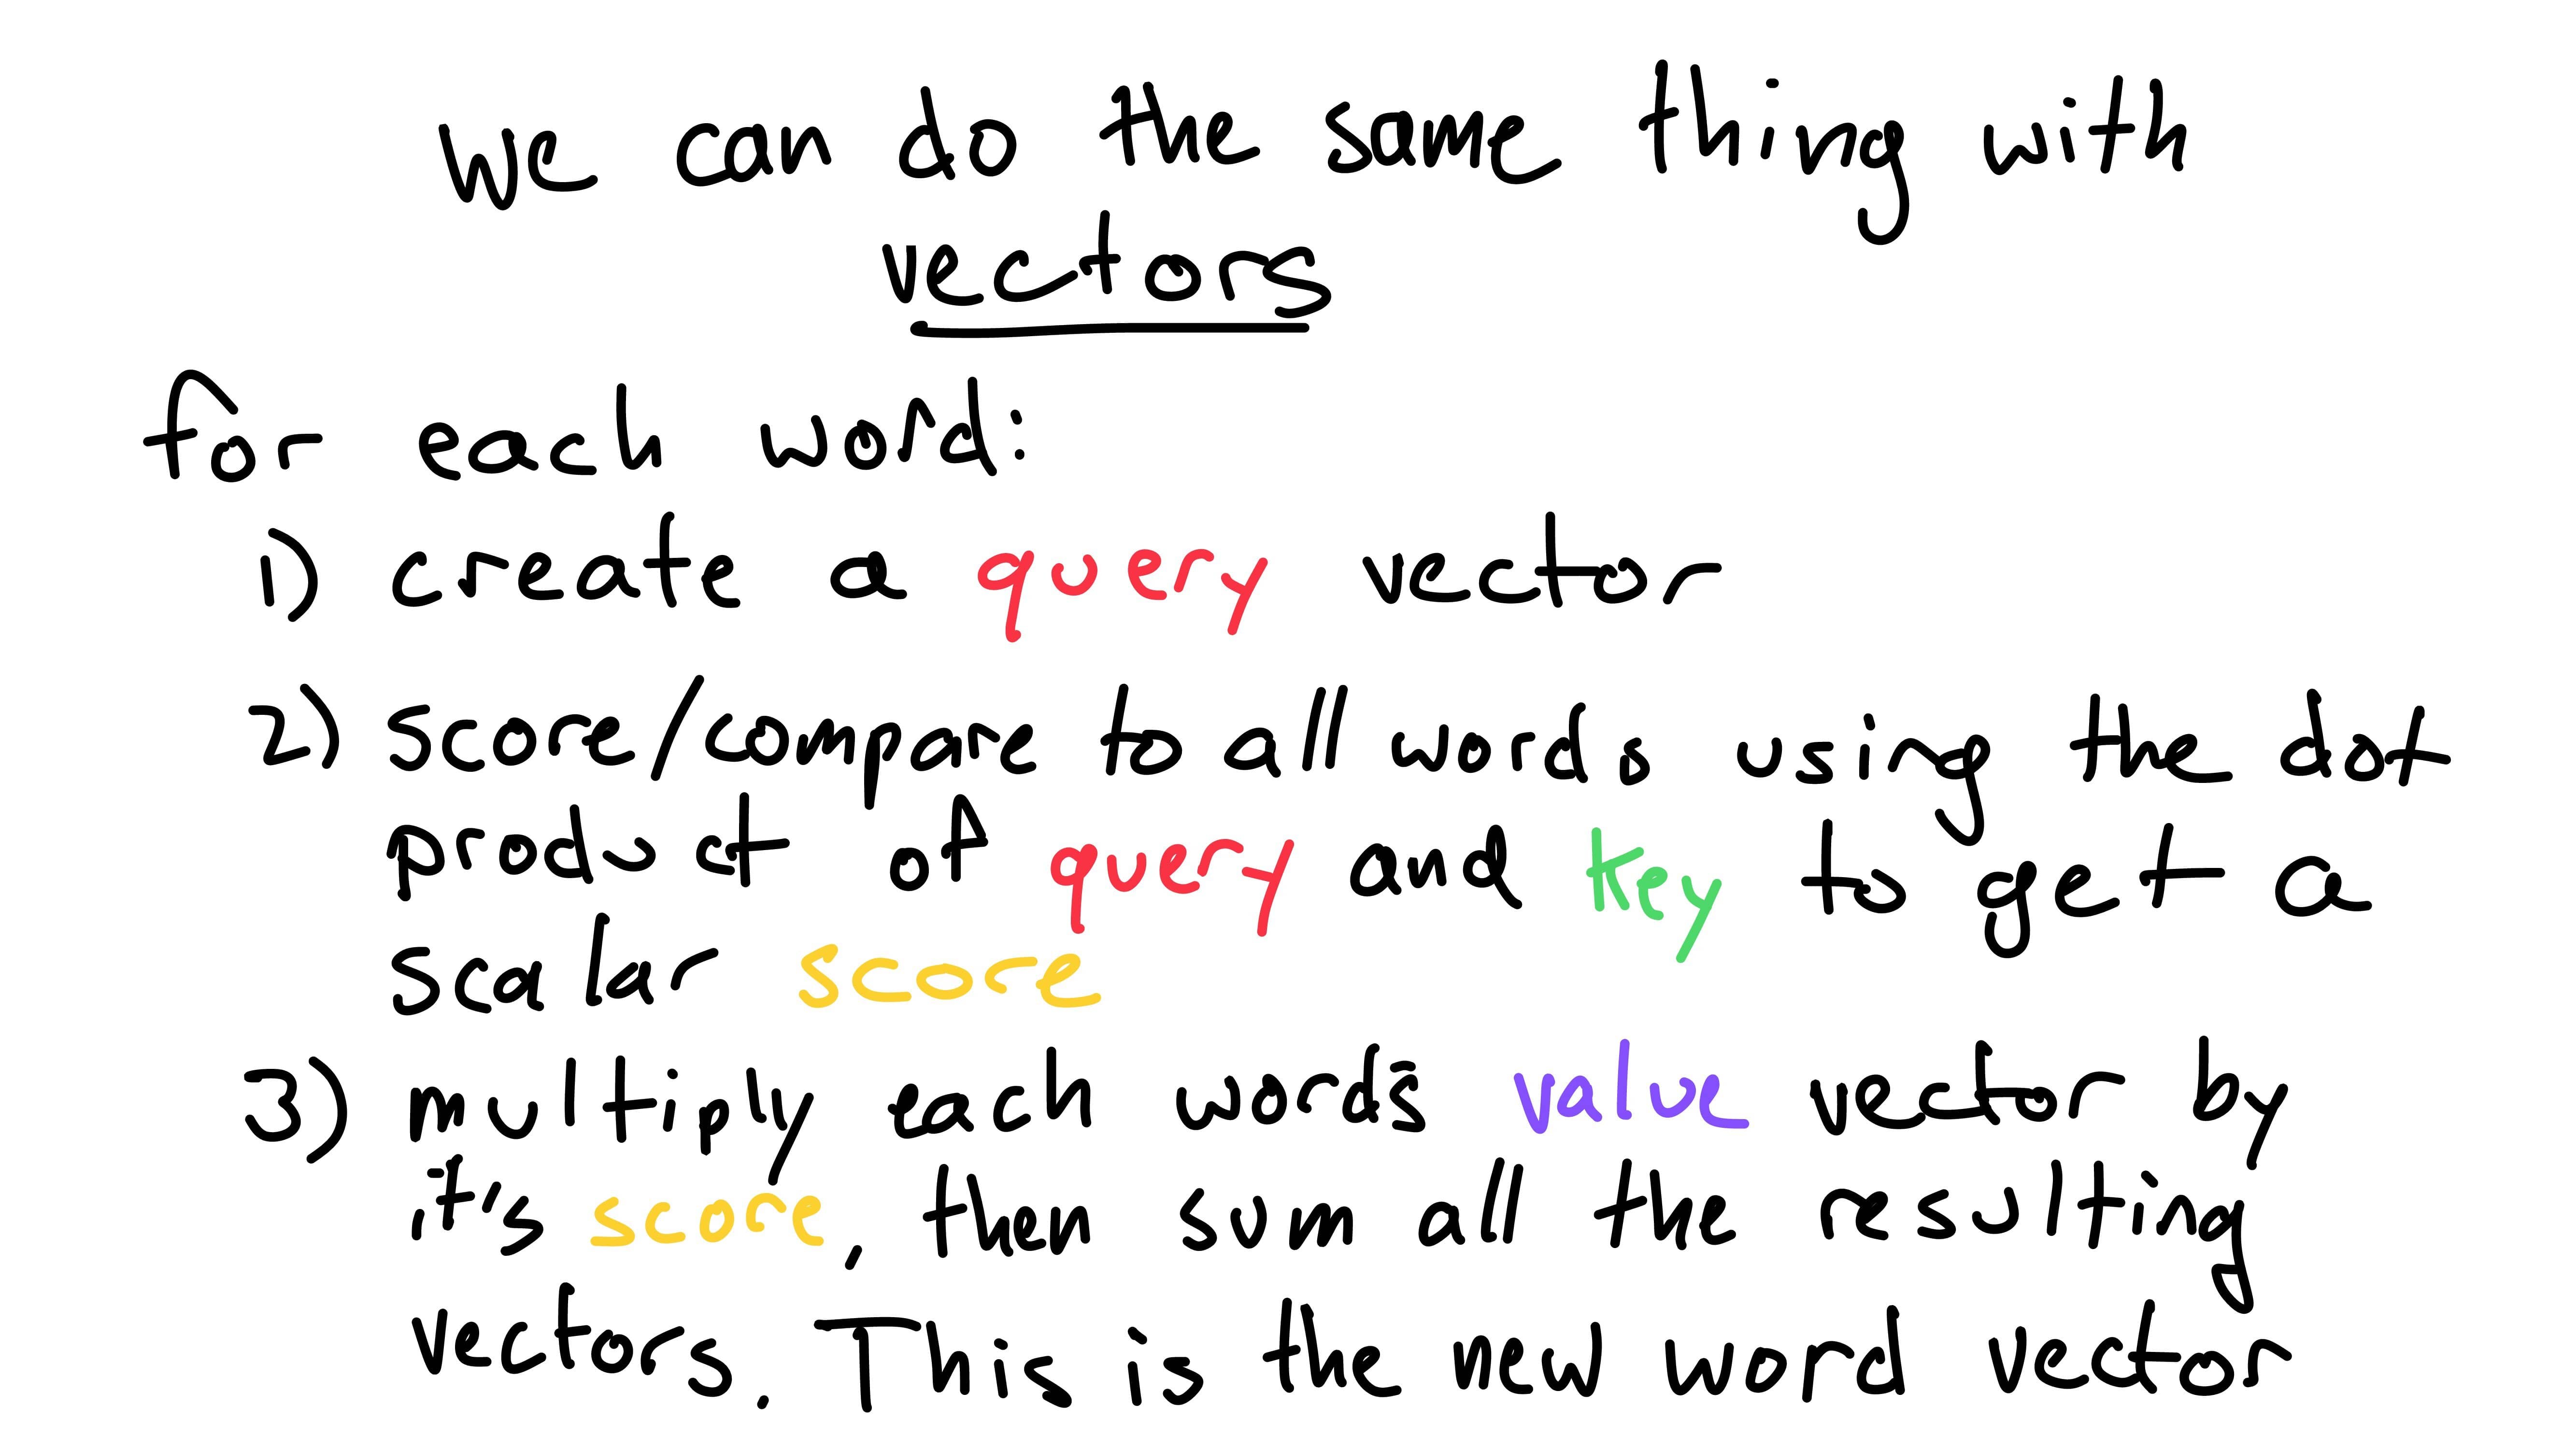 We can do the same thing with
vectors
for each word:
1) create a query vector
2) score/compare to all words using the dot
product of query and key to get a
scalar score
3) multiply each words value vector by
it's score, then sum all the resulting
vectors. This is the new word vector